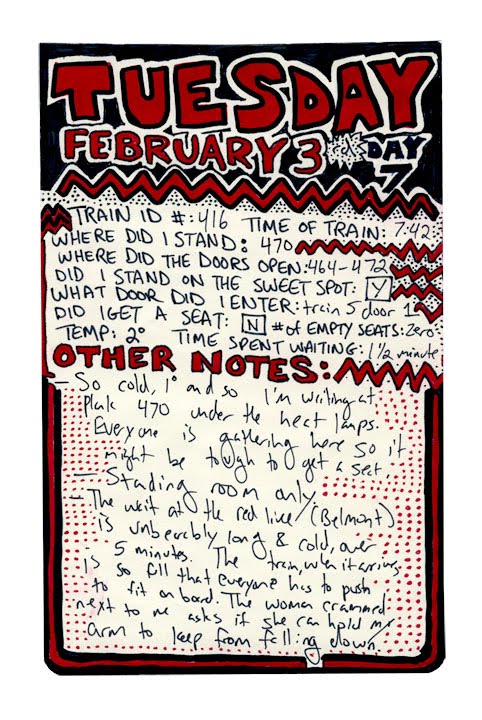 TUESDAY
FEBRUARY 3 DAY
7
TRAIN ID #: 416 TIME OF TRAIN: 7:42
WHERE DID I STAND: 470
WHERE DID THE DOORS OPEN: 464-472
DID I STAND ON THE SWEET SPOT: Y
WHAT DOOR DID I ENTER: train 5 door 1
DID I GET A SEAT: N # of EMPTY SEATS: zero
TEMP: 2° TIME SPENT WAITING: 1 1/2 minute
OTHER NOTES:
- So cold, 1° and so I'm writing at
Plank 470 under the heat lamps.
Everyone is gathering here so it
might be tough to get a seat.
- Standing room only.
- The wait at the red line (Belmont)
is unbearbly long & cold, over
5 minutes. The train, when it arrives
is so full that everyone has to push
to fit on board. The woman crammed
next to me asks if she can hold my
arm to keep from falling down.